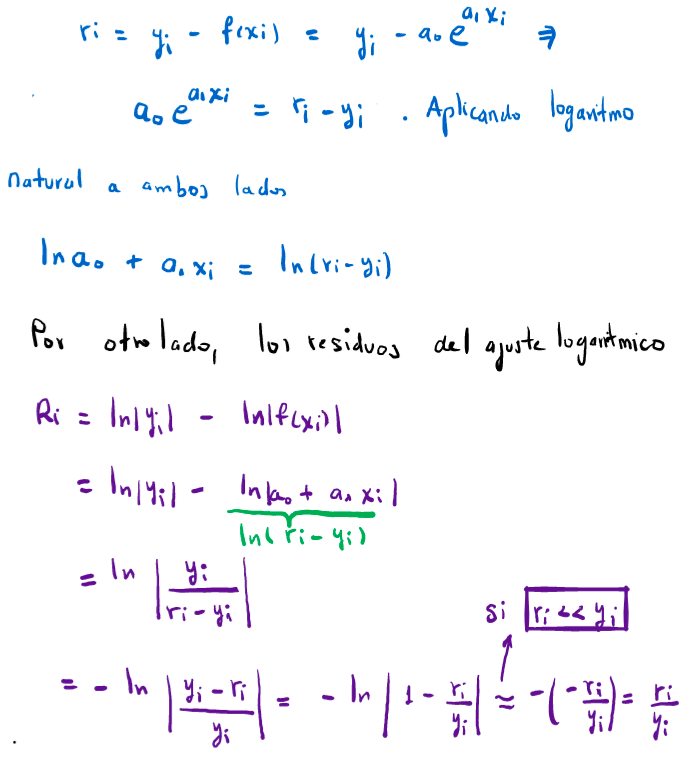 ri = yi - f(xi) = yi - a₀e^{a₁xi} ⇒
a₀e^{a₁xi} = ri - yi . Aplicando logaritmo
natural a ambos lados
ln a₀ + a₁xi = ln(ri - yi)
Por otro lado, los residuos del ajuste logaritmico
Ri = ln|yi| - ln|f(xi)|
= ln|yi| - ln|a₀ + a₁xi|
ln(ri - yi)
= ln |yi / (ri - yi)|
si ri << yi
= - ln |(yi - ri) / yi| = - ln |1 - ri/yi| ≈ -(-ri/yi) = ri/yi